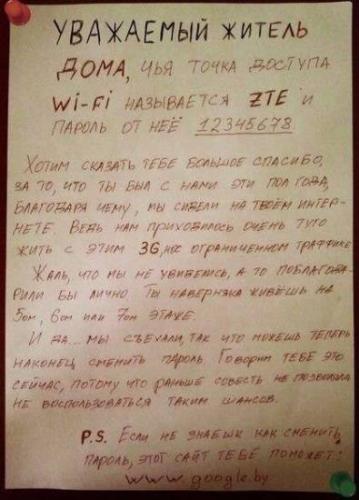 УВАЖАЕМЫЙ ЖИТЕЛЬ
ДОМА, ЧЬЯ ТОЧКА ДОСТУПА
Wi-Fi НАЗЫВАЕТСЯ ZTE И
ПАРОЛЬ ОТ НЕЁ 12345678
ХОТИМ СКАЗАТЬ ТЕБЕ БОЛЬШОЕ СПАСИБО,
ЗА ТО, ЧТО ТЫ БЫЛ С НАМИ ЭТИ ПОЛ ГОДА,
БЛАГОДАРЯ ЧЕМУ, МЫ СИДЕЛИ НА ТВОЁМ ИНТЕР-
НЕТЕ. ВЕДЬ НАМ ПРИХОДИЛОСЬ ОЧЕНЬ ТУГО
ЖИТЬ С ЭТИМ 3G, ОГРАНИЧЕННОМ ТРАФФИКЕ
ЖАЛЬ, ЧТО МЫ НЕ УВИДЕЛИСЬ, А ТО ПОБЛАГОДА-
РИЛИ БЫ ЛИЧНО. ТЫ НАВЕРНЯКА ЖИВЁШЬ НА
5ОМ, 6ОМ ИЛИ 7ОМ ЭТАЖЕ.
И ДА... МЫ СЪЕХАЛИ, ТАК ЧТО МОЖЕШЬ ТЕПЕРЬ
НАКОНЕЦ СМЕНИТЬ ПАРОЛЬ. ГОВОРИМ ТЕБЕ ЭТО
СЕЙЧАС, ПОТОМУ ЧТО РАНЬШЕ СОВЕСТЬ НЕ ПОЗВОЛИЛА
НЕ ВОСПОЛЬЗОВАТЬСЯ ТАКИМ ШАНСОМ.
P.S. ЕСЛИ НЕ ЗНАЕШЬ КАК СМЕНИТЬ
ПАРОЛЬ, ЭТОТ САЙТ ТЕБЕ ПОМОЖЕТ:
www.google.by